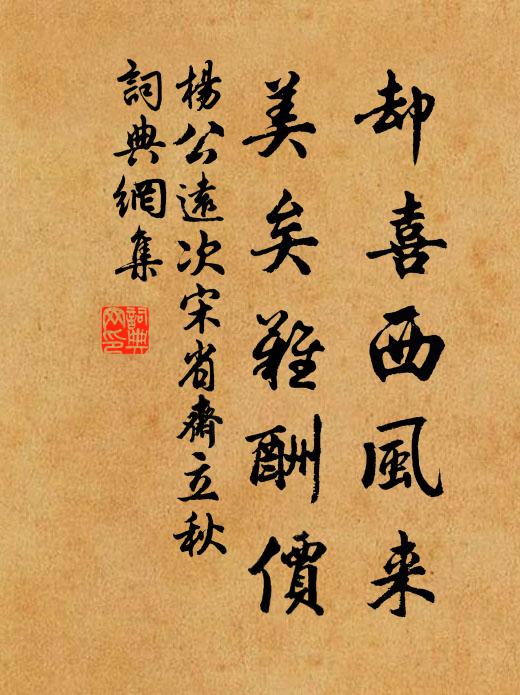 却喜西風来
美矣難酬價
楊公遠次宋省齋立秋
詞典網集
詞典網印